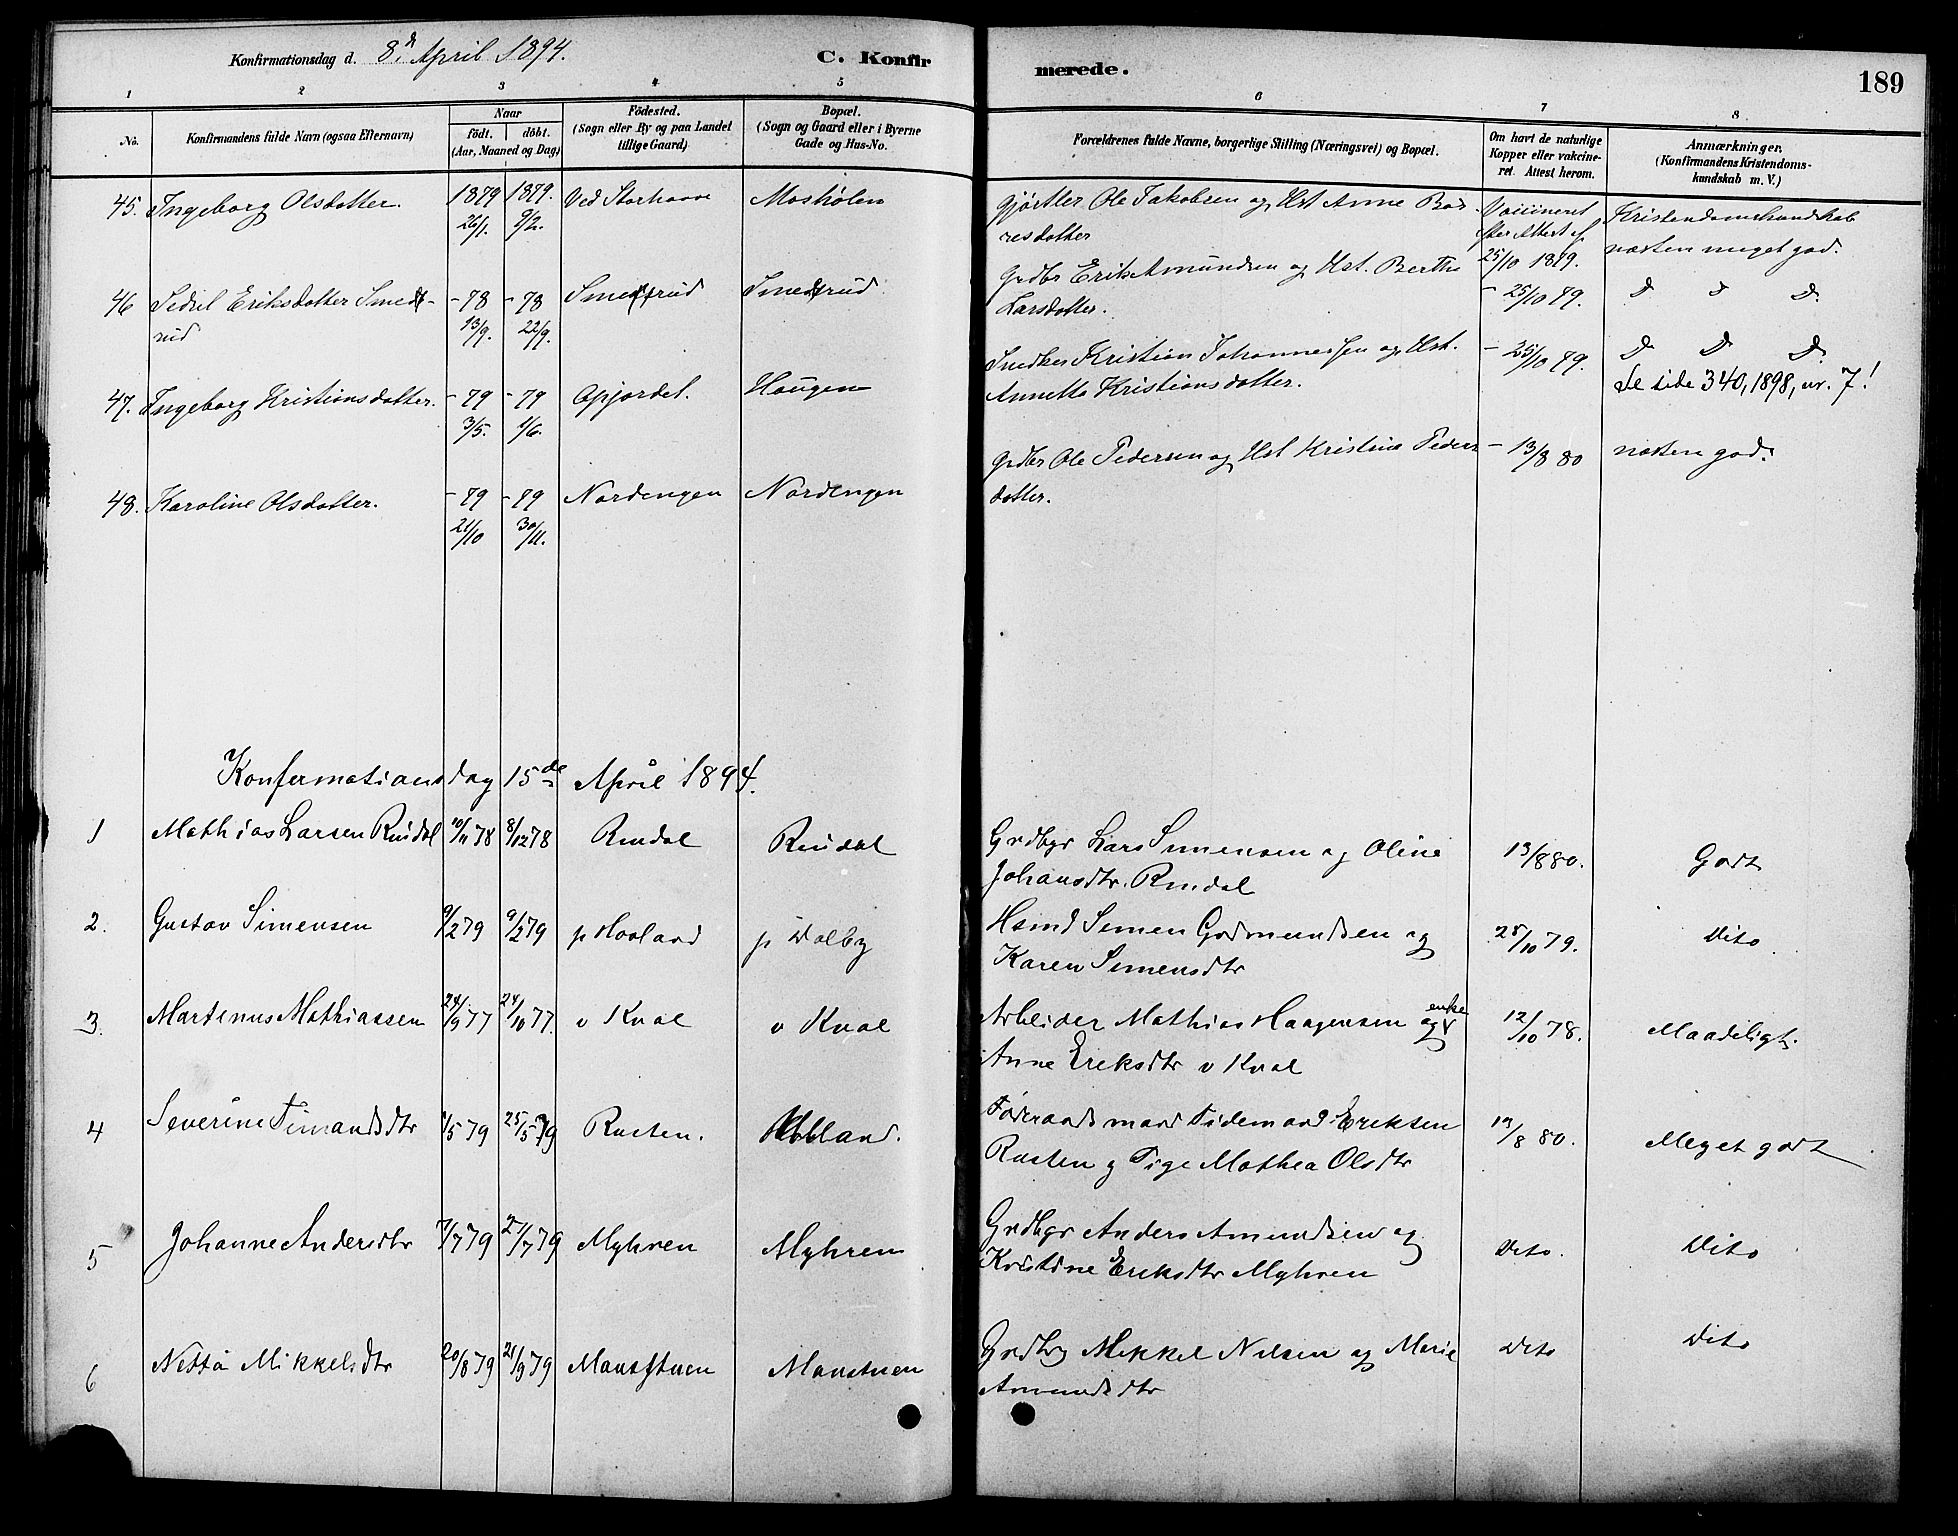 Konfirmationsdag d. 8d April 1894.
C. Konfir
merede.
189
1 2 3 4 5 6 7 8
No.
Konfirmandens fulde Navn (ogsaa Efternavn)
Naar
födt. döbt.
(Aar, Maaned og Dag)
Födested.
(Sogn eller By og paa Landet
tillige Gaard)
Bopæl.
(Sogn og Gaard eller i Byerne
Gade og Hus-No.
Forældrenes fulde Navne, borgerlige Stilling (Næringsvei) og Bopæl.
Om havt de naturlige
Kopper eller vakcine-
ret. Attest herom.
Anmærkninger.
(Konfirmandens Kristendoms-
kundskab m. V.)
45. Ingeborg Olsdatter. 1879 1879. Ved Storhaave Mosholen
26/1. 9/2.
Gjørtler Ole Jakobsen og Hst Anne Bor-
resdatter
Vaccineret
efter Attest af
25/10 1879.
Kristendomskundskab
næsten meget god.
46 Sidsel Eriksdatter Smed-
rud
- 78 - 78 Smedsrud Smedsrud
13/9. 22/9.
Grdbr Erik Amundsen og Hst. Berthe
Larsdatter.
- 25/10 79. D D D.
47. Ingeborg Kristiansdatter. - 79 - 79 Opjordet. Haugen
3/5. 1/6.
Snedker Kristian Johannessen og Hst.
Annette Kristiansdatter.
- 25/10 79. D D D.
Se side 340, 1898, nr. 7!
48. Karoline Olsdatter. - 79 - 79 Nordengen Nordengen
21/10 30/11.
Grdbr Ole Pedersen og Hst Kristine Peders
datter.
- 13/8 80 næsten god.
Konfermationsdag 15de April 1894.
1 Mathias Larsen Rudal 10/11 78 8/12 78 Rudal Rudal
Grdbgr Lars Simensen og Oline
Johansdtr. Rudal
13/8 80. Godt
2. Gustav Simensen 9/2 79 9/2 79 p Hovland p Dalby
Hsmd Simen Gudmundsen og
Karen Simensdtr
25/10 79. Dito
3. Martinus Mathiassen 24/9 77 24/10 77. v Kval v Kval
Arbeider Mathias Haagensen og enke
Anne Eriksdtr v Kval
12/10 78. Maadeligt.
4 Severine Timandsdtr 1/5 79 25/5 79 Rusten. Holland.
Føderaadsmand Tidemand Eriksen
Rusten g Pige Mathea Olsdtr
13/8 80. Meget godt
5 Johanne Andersdtr 7/7 79 27/7 79 Myhren Myhren
Grdbgr Anders Amundsen og
Kristine Eriksdtr Myhren
Dito. Dito
6 Netta Mikkelsdtr 20/8 79 21/9 79 Manstuen Manstuen
Grdbg Mikkel Nilsen og Marie
Amundsdtr
Dito Dito